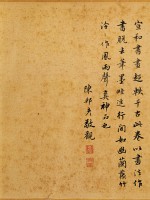 宣和書畫超軼千古此卷以書法作
畫脫去筆墨畦逕行間如幽蘭露竹
泠泠作風雨聲真神品也
陳邦彥敬觀